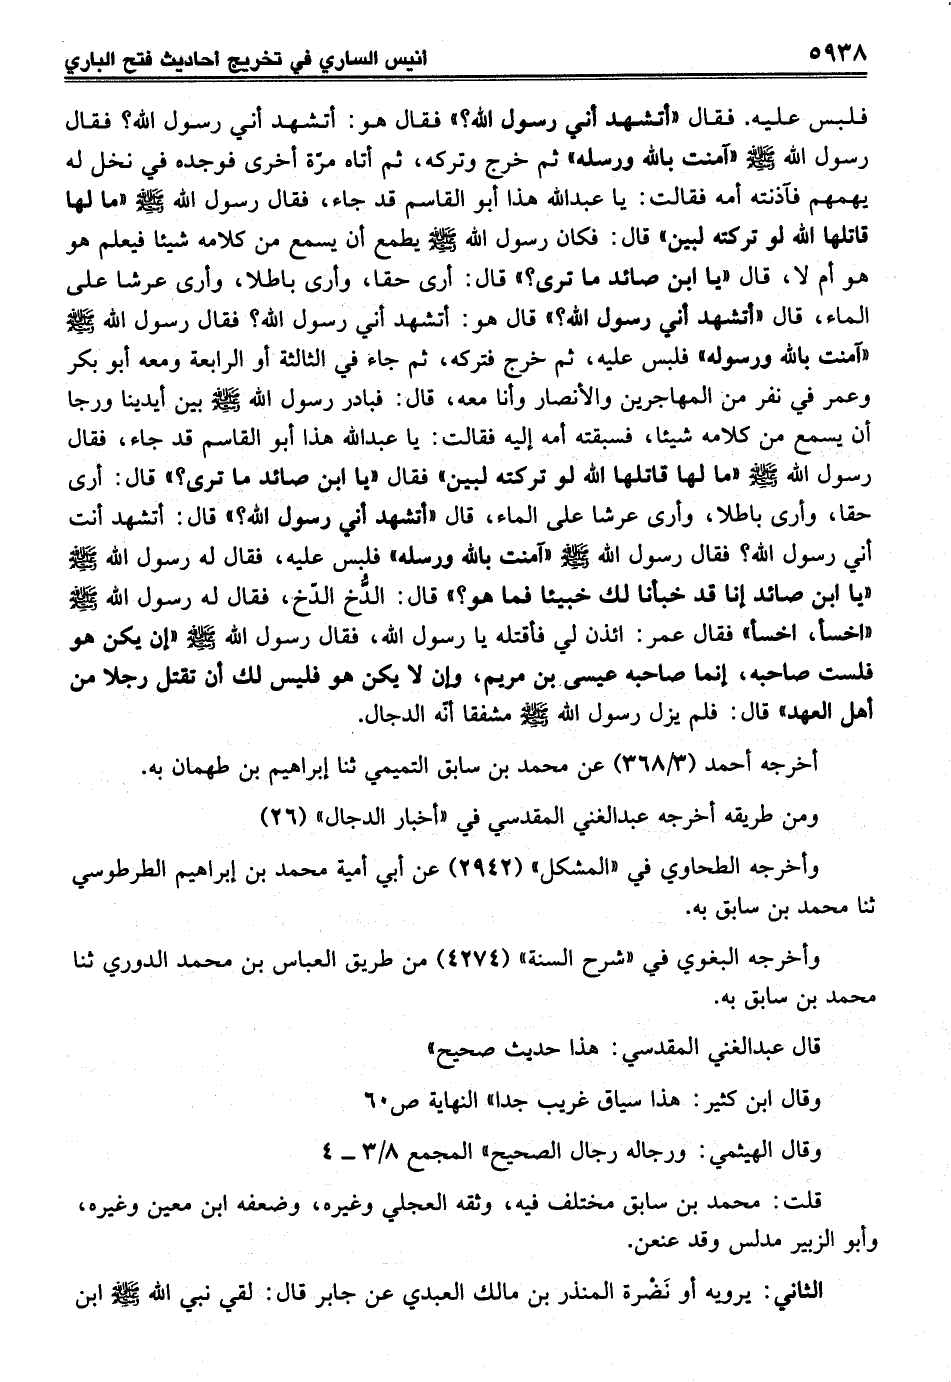 ٥٩٣٨
أنيس الساري في تخريج أحاديث فتح الباري
فلبس عليه. فقال «أتشهد أني رسول الله؟» فقال هو: أتشهد أني رسول الله؟ فقال
رسول الله ﷺ «آمنت بالله ورسله» ثم خرج وتركه، ثم أتاه مرّة أخرى فوجده في نخل له
يهمهم فآذنته أمه فقالت: يا عبدالله هذا أبو القاسم قد جاء، فقال رسول الله ﷺ «ما لها
قاتلها الله لو تركته لبين» قال: فكان رسول الله ﷺ يطمع أن يسمع من كلامه شيئا فيعلم هو
هو أم لا، قال «يا ابن صائد ما ترى؟» قال: أرى حقا، وأرى باطلا، وأرى عرشا على
الماء، قال «أتشهد أني رسول الله؟» قال هو: أتشهد أني رسول الله؟ فقال رسول الله ﷺ
«آمنت بالله ورسوله» فلبس عليه، ثم خرج فتركه، ثم جاء في الثالثة أو الرابعة ومعه أبو بكر
وعمر في نفر من المهاجرين والأنصار وأنا معه، قال: فبادر رسول الله ﷺ بين أيدينا ورجا
أن يسمع من كلامه شيئا، فسبقته أمه إليه فقالت: يا عبدالله هذا أبو القاسم قد جاء، فقال
رسول الله ﷺ «ما لها قاتلها الله لو تركته لبين» فقال «يا ابن صائد ما ترى؟» قال: أرى
حقا، وأرى باطلا، وأرى عرشا على الماء، قال «أتشهد أني رسول الله؟» قال: أتشهد أنت
أني رسول الله؟ فقال رسول الله ﷺ «آمنت بالله ورسله» فلبس عليه، فقال له رسول الله ﷺ
«يا ابن صائد إنا قد خبأنا لك خبيئا فما هو؟» قال: الدُّخ الدّخ، فقال له رسول الله ﷺ
«اخسأ، اخسأ» فقال عمر: ائذن لي فأقتله يا رسول الله، فقال رسول الله ﷺ «إن يكن هو
فلست صاحبه، إنما صاحبه عيسى بن مريم، وإن لا يكن هو فليس لك أن تقتل رجلا من
أهل العهد» قال: فلم يزل رسول الله ﷺ مشفقا أنّه الدجال.
أخرجه أحمد (٣٦٨/٣) عن محمد بن سابق التميمي ثنا إبراهيم بن طهمان به.
ومن طريقه أخرجه عبدالغني المقدسي في «أخبار الدجال» (٢٦)
وأخرجه الطحاوي في «المشكل» (٢٩٤٢) عن أبي أمية محمد بن إبراهيم الطرطوسي
ثنا محمد بن سابق به.
وأخرجه البغوي في «شرح السنة» (٤٢٧٤) من طريق العباس بن محمد الدوري ثنا
محمد بن سابق به.
قال عبدالغني المقدسي: هذا حديث صحيح»
وقال ابن كثير: هذا سياق غريب جدا» النهاية ص٦٠
وقال الهيثمي: ورجاله رجال الصحيح» المجمع ٣/٨ ـ ٤
قلت: محمد بن سابق مختلف فيه، وثقه العجلي وغيره، وضعفه ابن معين وغيره،
وأبو الزبير مدلس وقد عنعن.
الثاني: يرويه أو نَضْرة المنذر بن مالك العبدي عن جابر قال: لقي نبي الله ﷺ ابن